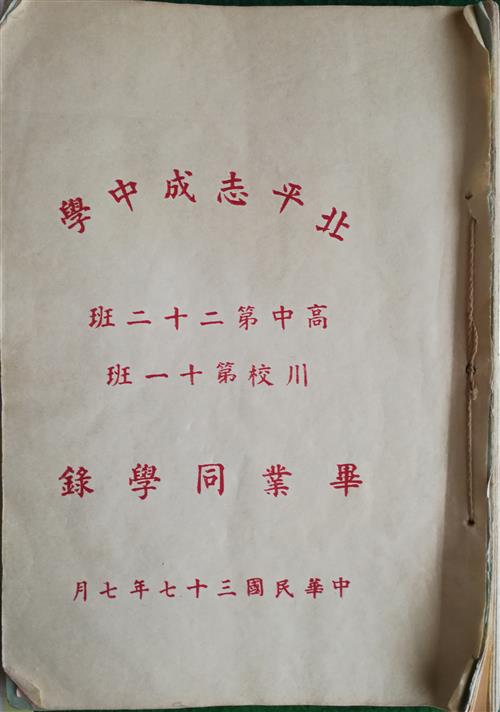 北平志成中學
高中第二十二班
川校第十一班
畢業同學錄
中華民國三十七年七月